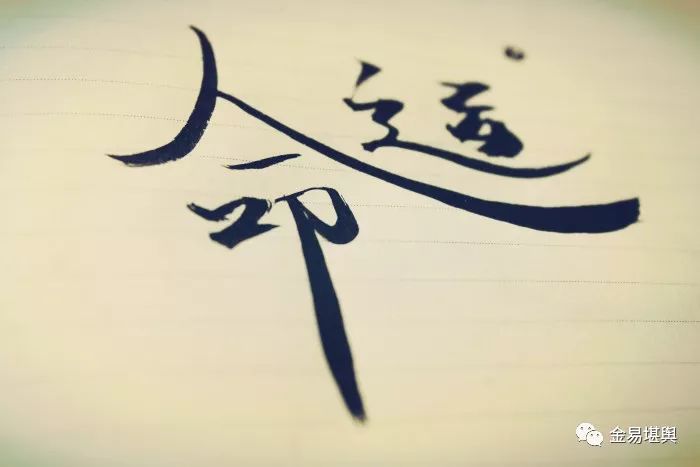 命运
金易堪舆